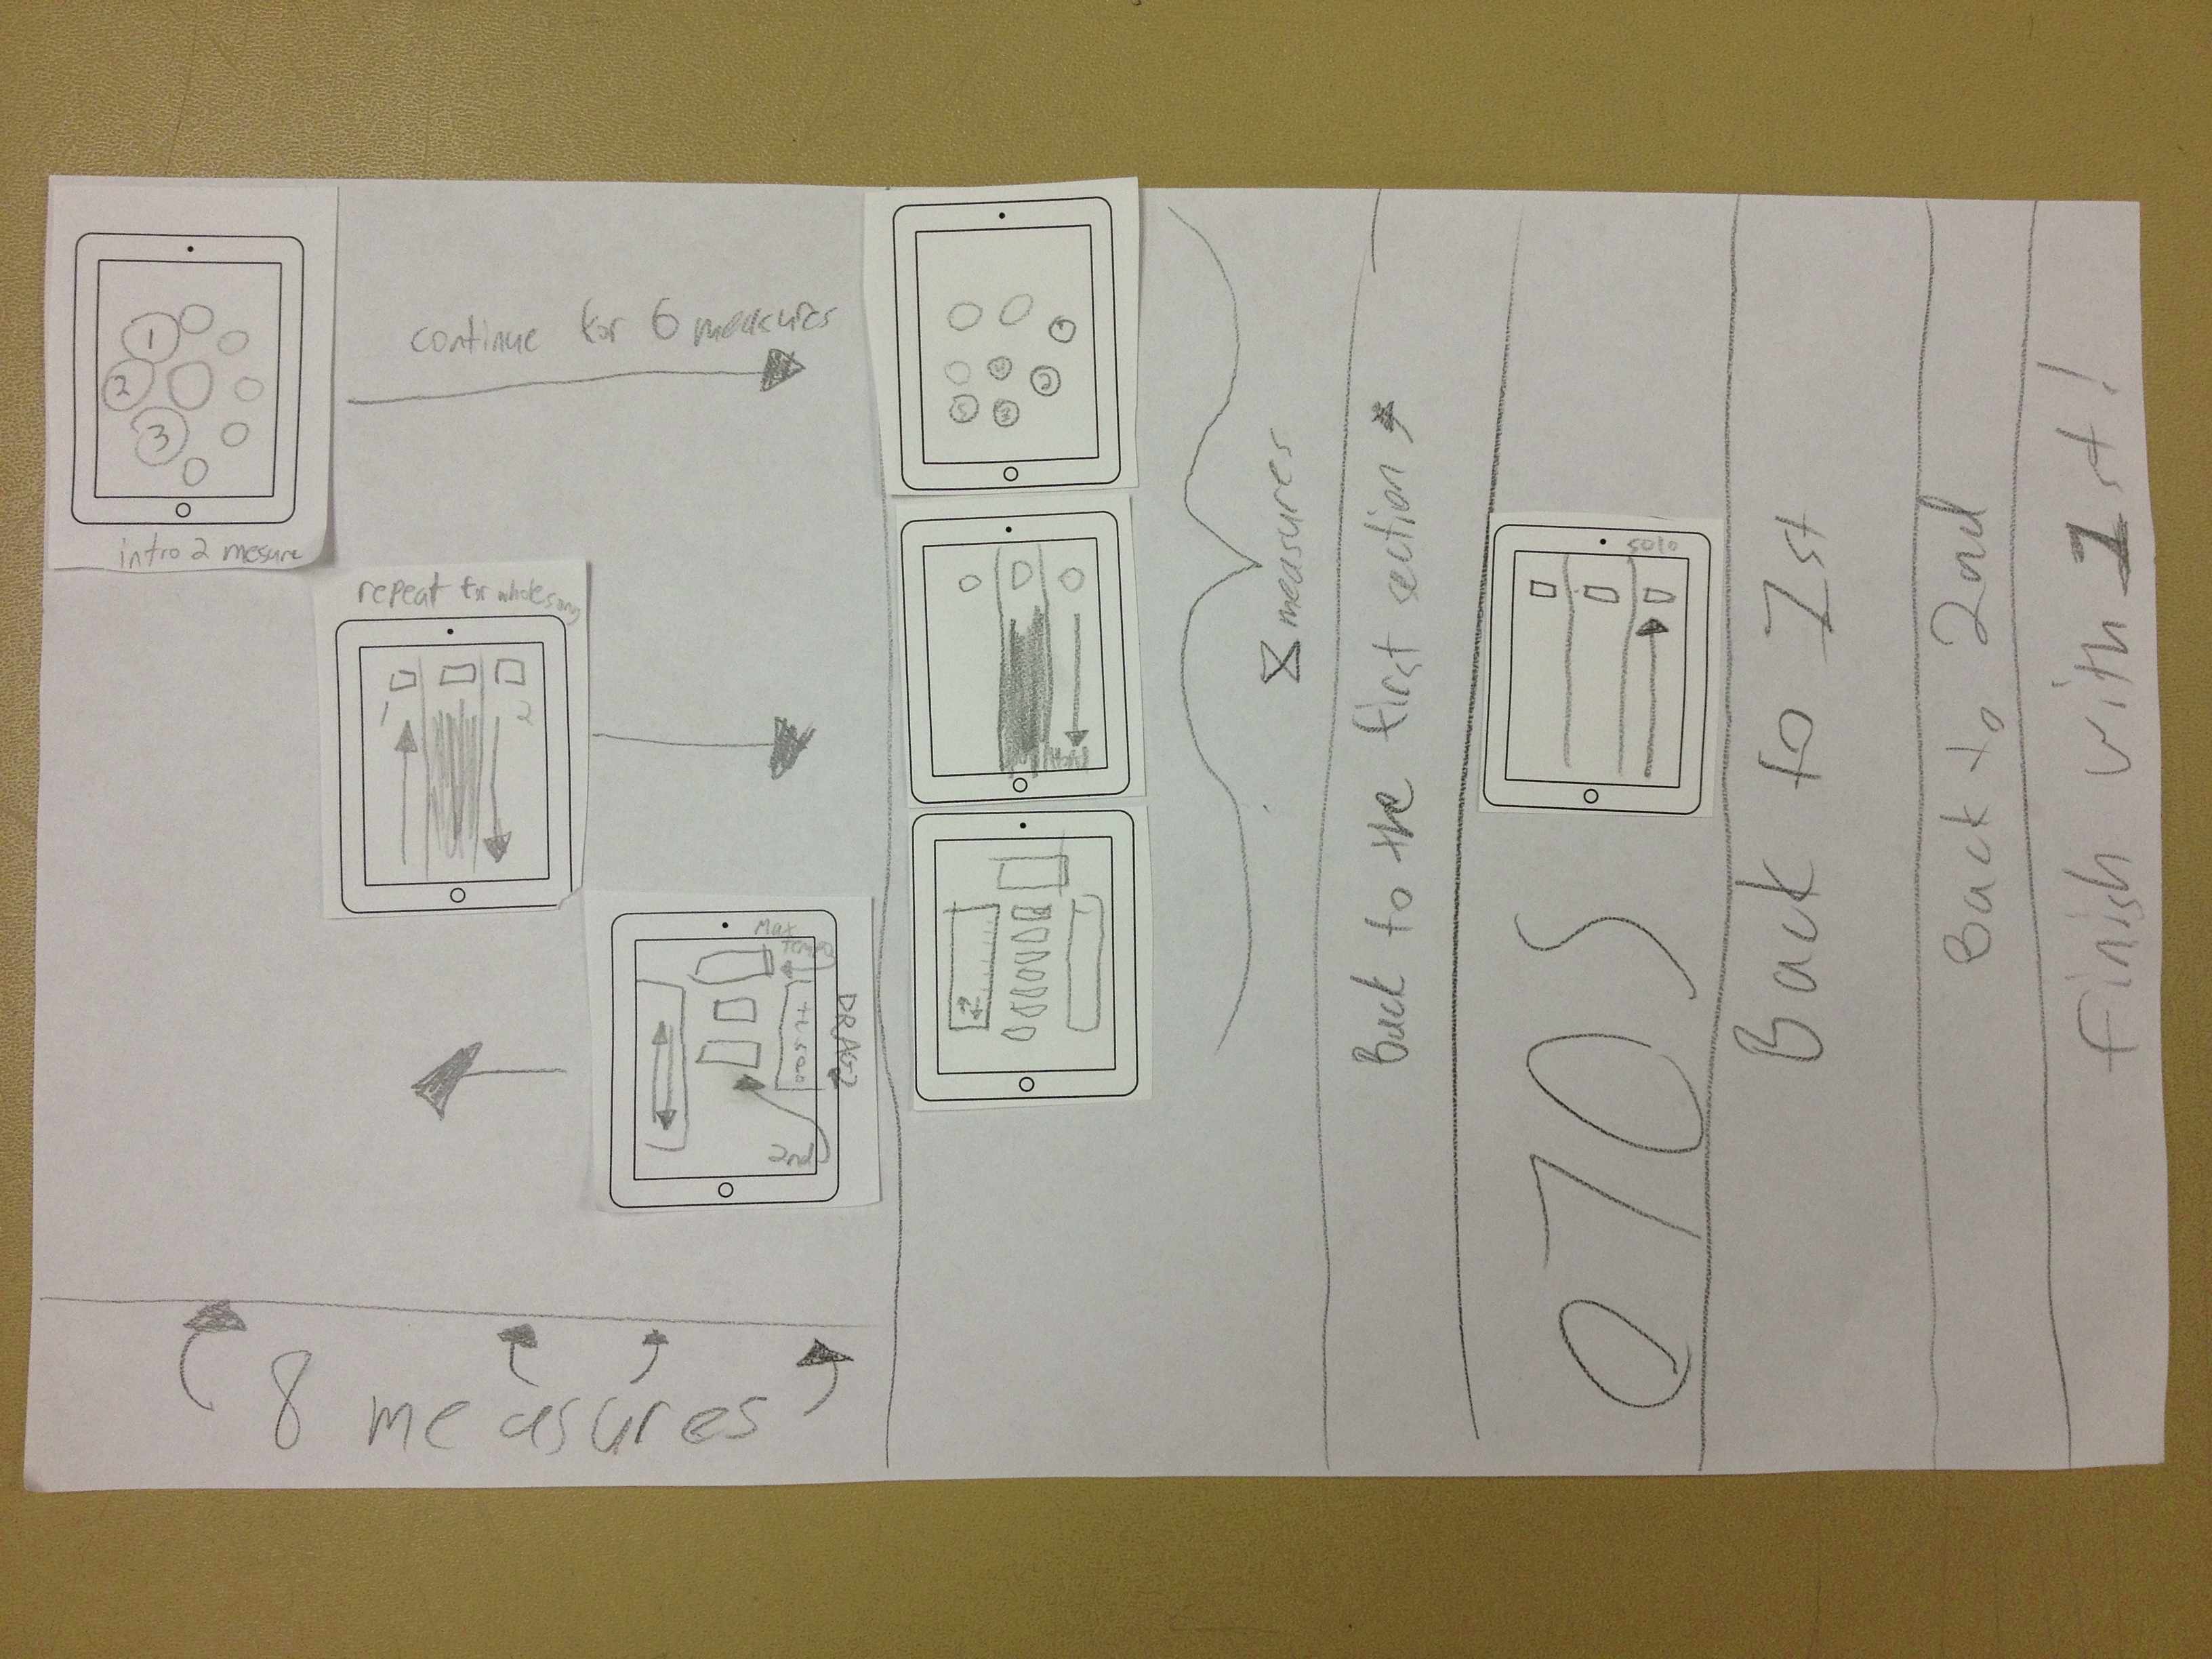 1
2
3
intro 2 mesure
continue for 6 measures
repeat for whole song
1
2
Max
tempo
DRAG?
2nd
8 measures
1
4
2
5
3
Hold
8 measures
Back to the first section
solo
SOLO
Back to 1st
Back to 2nd
Finish with 1st!